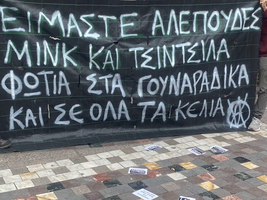 ΕΙΜΑΣΤΕ ΑΛΕΠΟΥΔΕΣ
ΜΙΝΚ ΚΑΙ ΤΣΙΝΤΣΙΛΑ
ΦΩΤΙΑ ΣΤΑ ΓΟΥΝΑΡΑΔΙΚΑ
ΚΑΙ ΣΕ ΟΛΑ ΤΑ ΚΕΛΙΑ